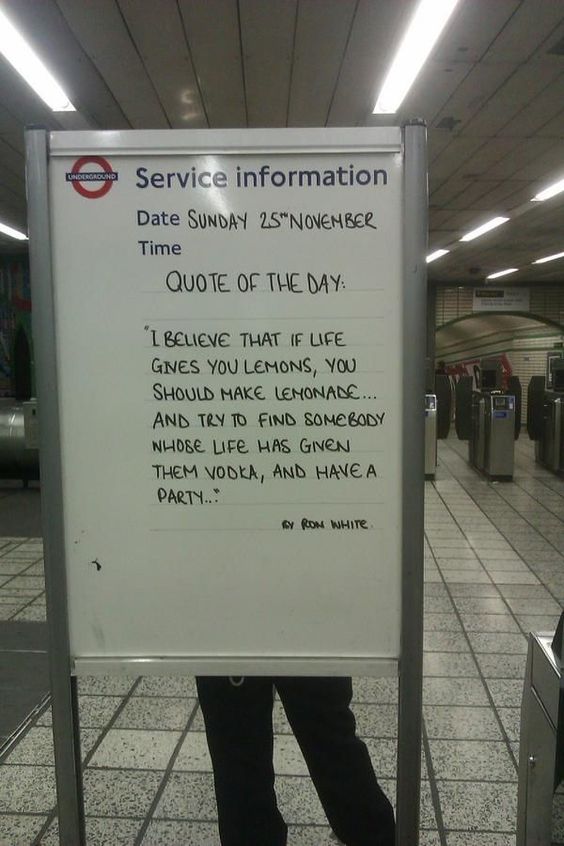 UNDERGROUND
Service information
Date SUNDAY 25TH NOVEMBER
Time
QUOTE OF THE DAY:
"I BELIEVE THAT IF LIFE
GIVES YOU LEMONS, YOU
SHOULD MAKE LEMONADE...
AND TRY TO FIND SOMEBODY
WHOSE LIFE HAS GIVEN
THEM VODKA, AND HAVE A
PARTY.."
BY RON WHITE.